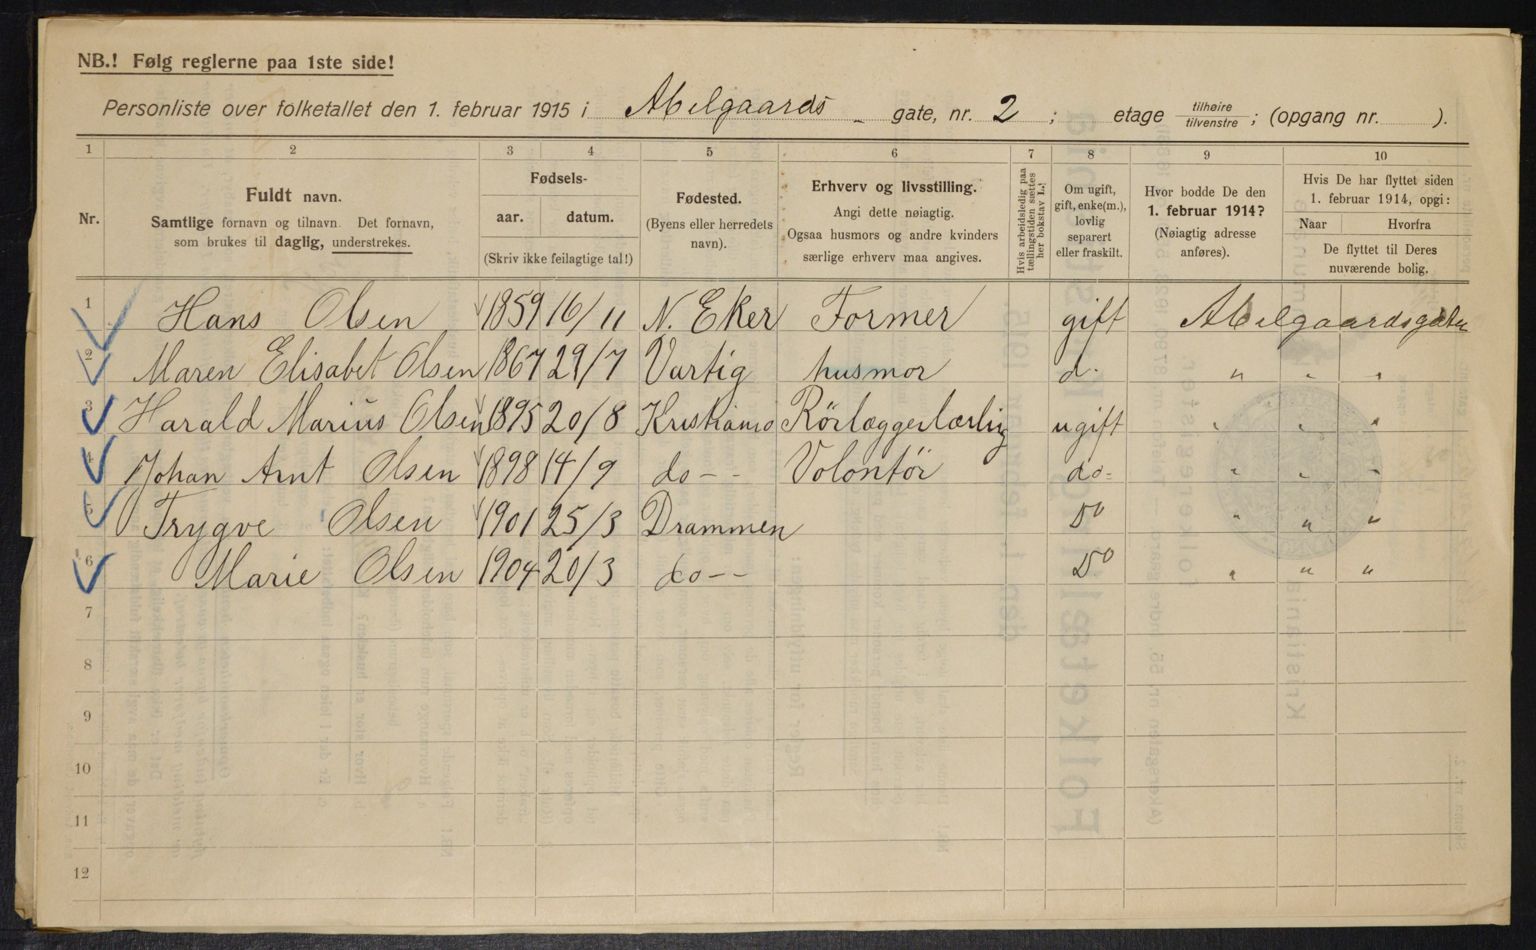 NB.! Følg reglerne paa 1ste side!
Personliste over folketallet den 1. februar 1915 i Abelgaards gate, nr. 2 ; etage tilhøire tilvenstre ; (opgang nr. ).
1 2 3 4 5 6 7 8 9 10
Nr.
Fuldt navn.
Samtlige fornavn og tilnavn. Det fornavn,
som brukes til daglig, understrekes.
Fødsels-
aar. datum.
(Skriv ikke feilagtige tal!)
Fødested.
(Byens eller herredets
navn).
Erhverv og livsstilling.
Angi dette nøiagtig.
Ogsaa husmors og andre kvinders
særlige erhverv maa angives.
Hvis arbeidsledig paa
tællingstiden sættes
her bokstav L.!
Om ugift,
gift, enke(m.),
lovlig
separert
eller fraskilt.
Hvor bodde De den
1. februar 1914?
(Nøiagtig adresse
anføres).
Hvis De har flyttet siden
1. februar 1914, opgi:
Naar Hvorfra
De flyttet til Deres
nuværende bolig.
1 Hans Olsen 1859 16/11 N. Eker Former gift Abelgaardsgaten
2 Maren Elisabet Olsen 1867 29/7 Vartig husmor d. " " "
3 Harald Marius Olsen 1895 20/8 Kristiania Rörlæggerlærling ugift " " "
4 Johan Arnt Olsen 1898 14/9 do - - Volontör do - " " "
5 Trygve Olsen 1901 25/3 Drammen Do " " "
6 Marie Olsen 1904 20/3 do - - Do " " "
7
8
9
10
11
12